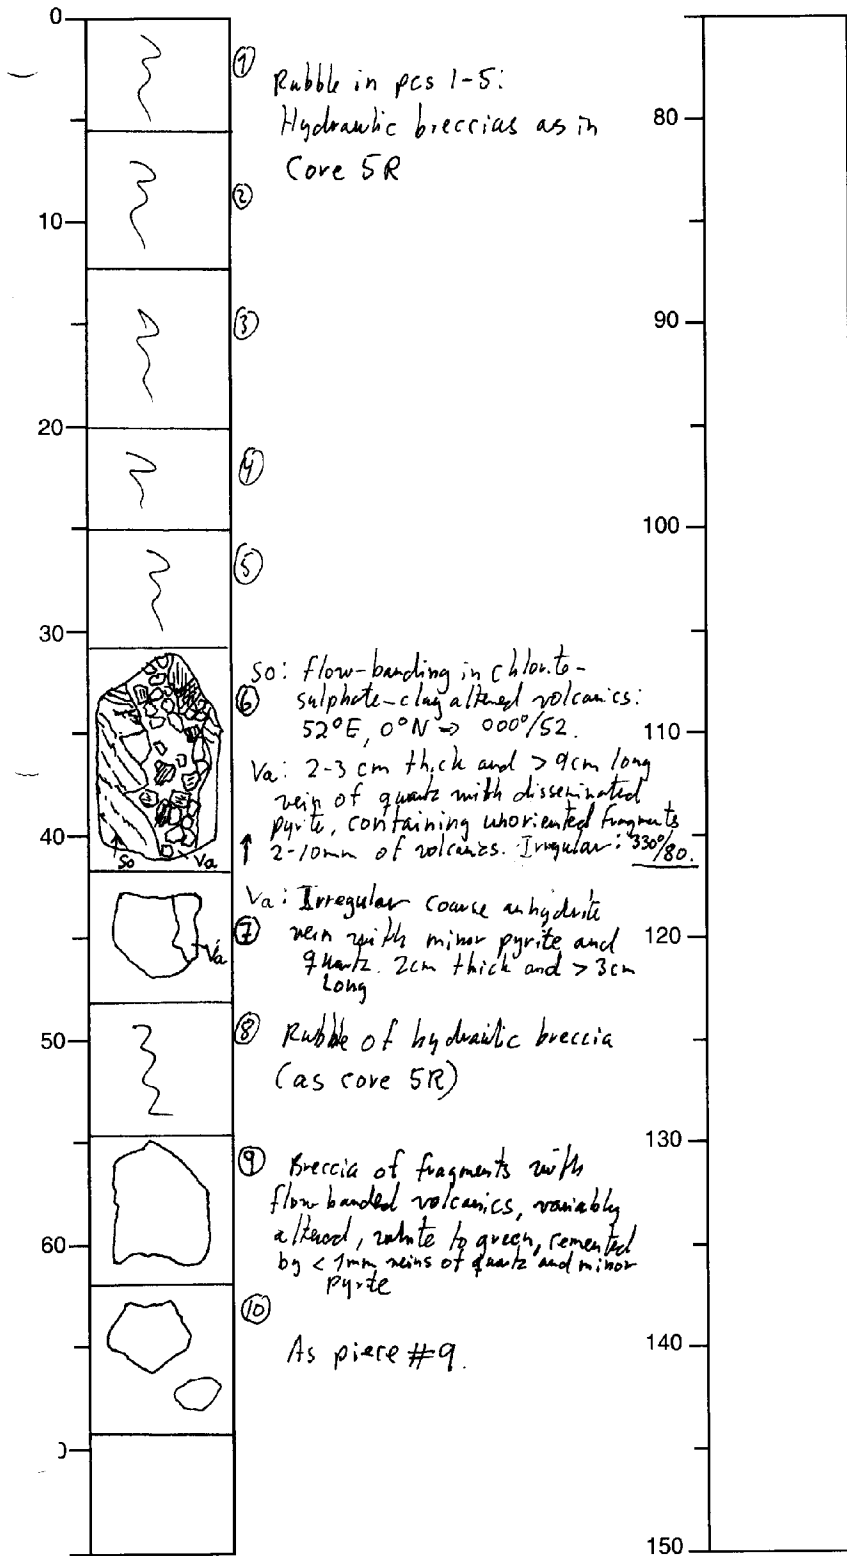 0
10
20
30
40
50
60
80
90
100
110
120
130
140
150
① Rubble in pcs 1-5:
Hydraulic breccias as in
Core 5R
②
③
④
⑤
So: flow-banding in chlorite-
⑥ sulphate-clay altered volcanics:
52°E, 0°N → 000°/52.
Va: 2-3 cm thick and > 9cm long
vein of quartz with disseminated
pyrite, containing unoriented fragments
2-10mm of volcanics. Irregular: 330°/80.
So Va
Va: Irregular coarse anhydrite
⑦ vein with minor pyrite and
quartz. 2cm thick and > 3cm
Long
Va
⑧ Rubble of hydraulic breccia
(as core 5R)
⑨ Breccia of fragments with
flow banded volcanics, variably
altered, white to green, cemented
by < 1mm veins of quartz and minor
pyrite
⑩
As piece #9.